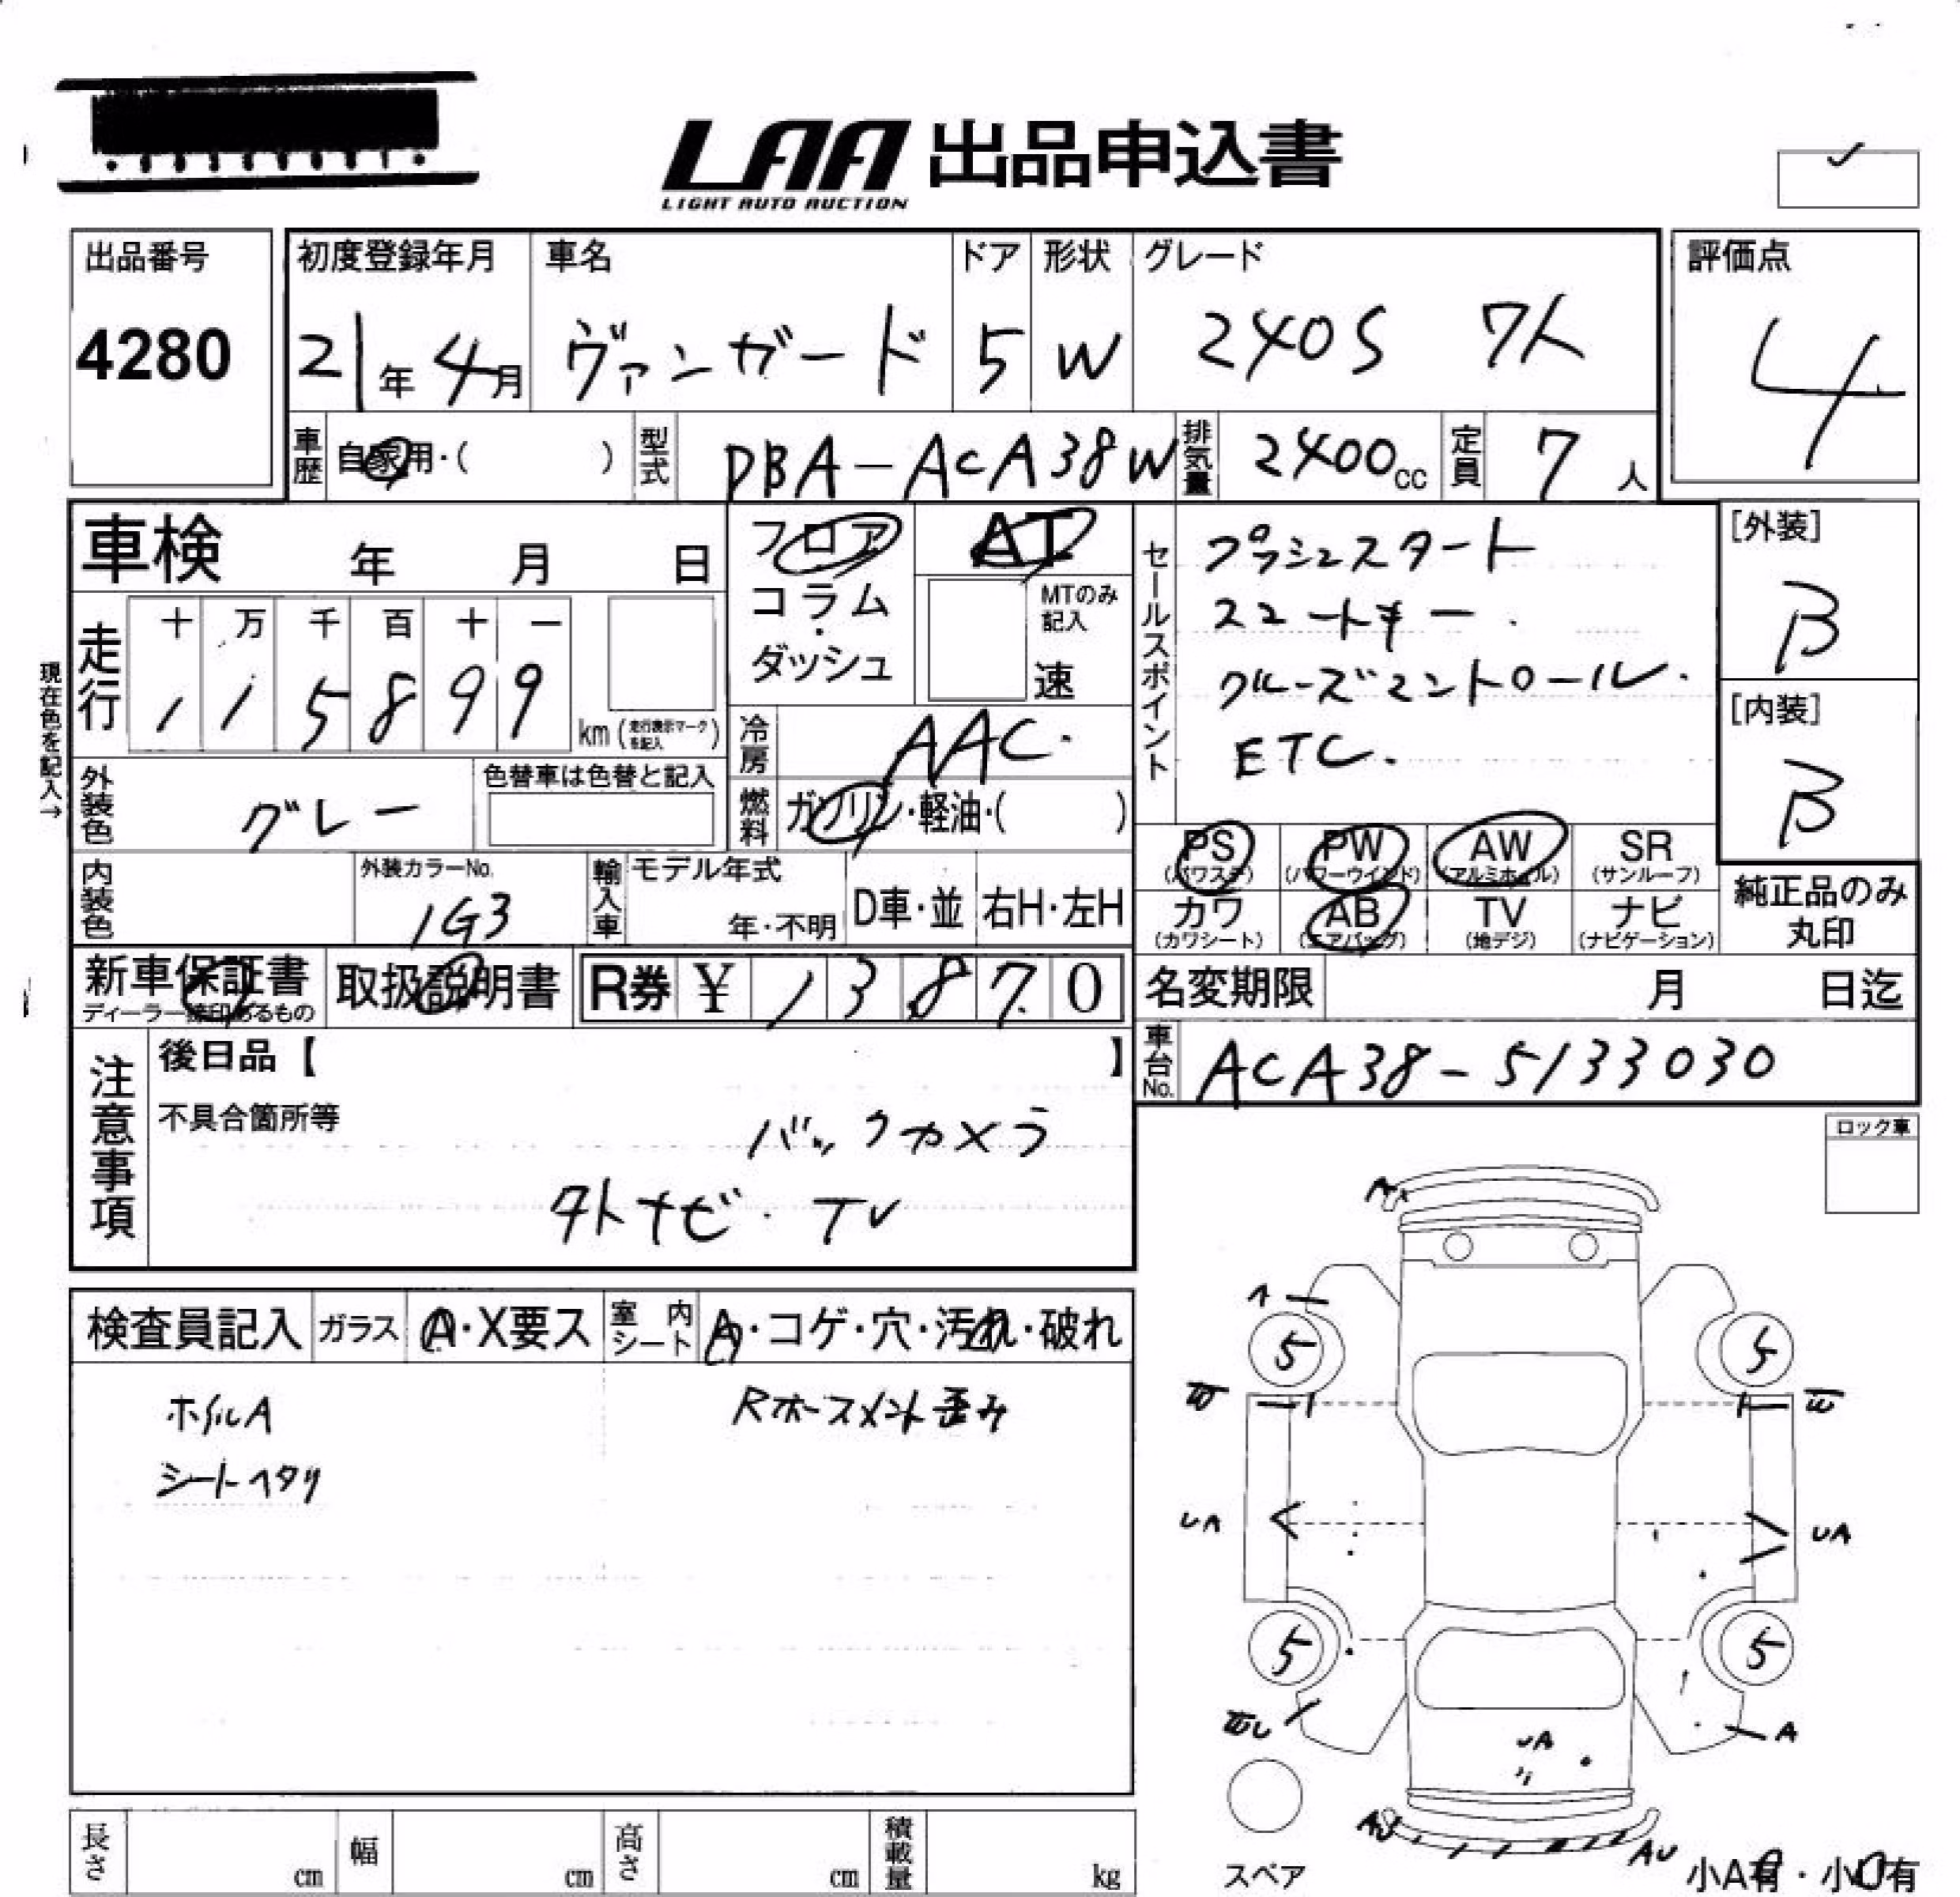 LAA 出品申込書
LIGHT AUTO AUCTION
出品番号 初度登録年月 車名 ドア 形状 グレード 評価点
4280 21年 4月 ヴァンガード 5 W 240S 7人 4
車歴 自家用・( ) 型式 DBA-ACA38W 排気量 2400cc 定員 7人
車検 年 月 日
フロア・コラム・ダッシュ
AT
MTのみ記入
速
セールスポイント
プッシュスタート
スマートキー.
クルーズコントロール.
ETC.
[外装]
B
[内装]
B
現在色を記入→
走行 十 万 千 百 十 一
1 1 5 8 9 9 km (走行表示マークを記入)
冷房 AAC.
外装色 グレー 色替車は色替と記入
燃料 ガソリン・軽油・( )
内装色 外装カラーNo. 1G3 輸入車 モデル年式 年・不明 D車・並 右H・左H
PS (パワステ) PW (パワーウインド) AW (アルミホイル) SR (サンルーフ)
カワ (カワシート) AB (エアバッグ) TV (地デジ) ナビ (ナビゲーション)
純正品のみ丸印
新車保証書 取扱説明書 R券 ¥ 1 3 8 7 0
ディーラー捺印あるもの
名変期限 月 日迄
車台No. ACA38-5133030
注意事項
後日品【 】
不具合箇所等
バックカメラ
外ナビ・TV
ロック車
検査員記入 ガラス A・X要ス 室内シート A・コゲ・穴・汚れ・破れ
ホイルA Rホースメント歪み
シートヘタリ
A
A
5 5
W W
UA UA
5 5
WU A
UA
AU AU
スペア
小A有・小U有
長さ cm 幅 cm 高さ cm 積載量 kg